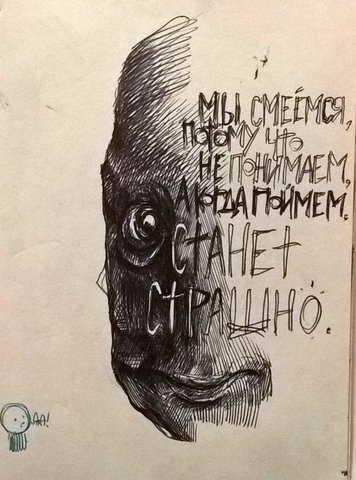 МЫ СМЕЁМСЯ,
ПОТОМУ ЧТО
НЕ ПОНИМАЕМ,
А КОГДА ПОЙМЕМ,
СТАНЕТ
СТРАШНО.
АА!